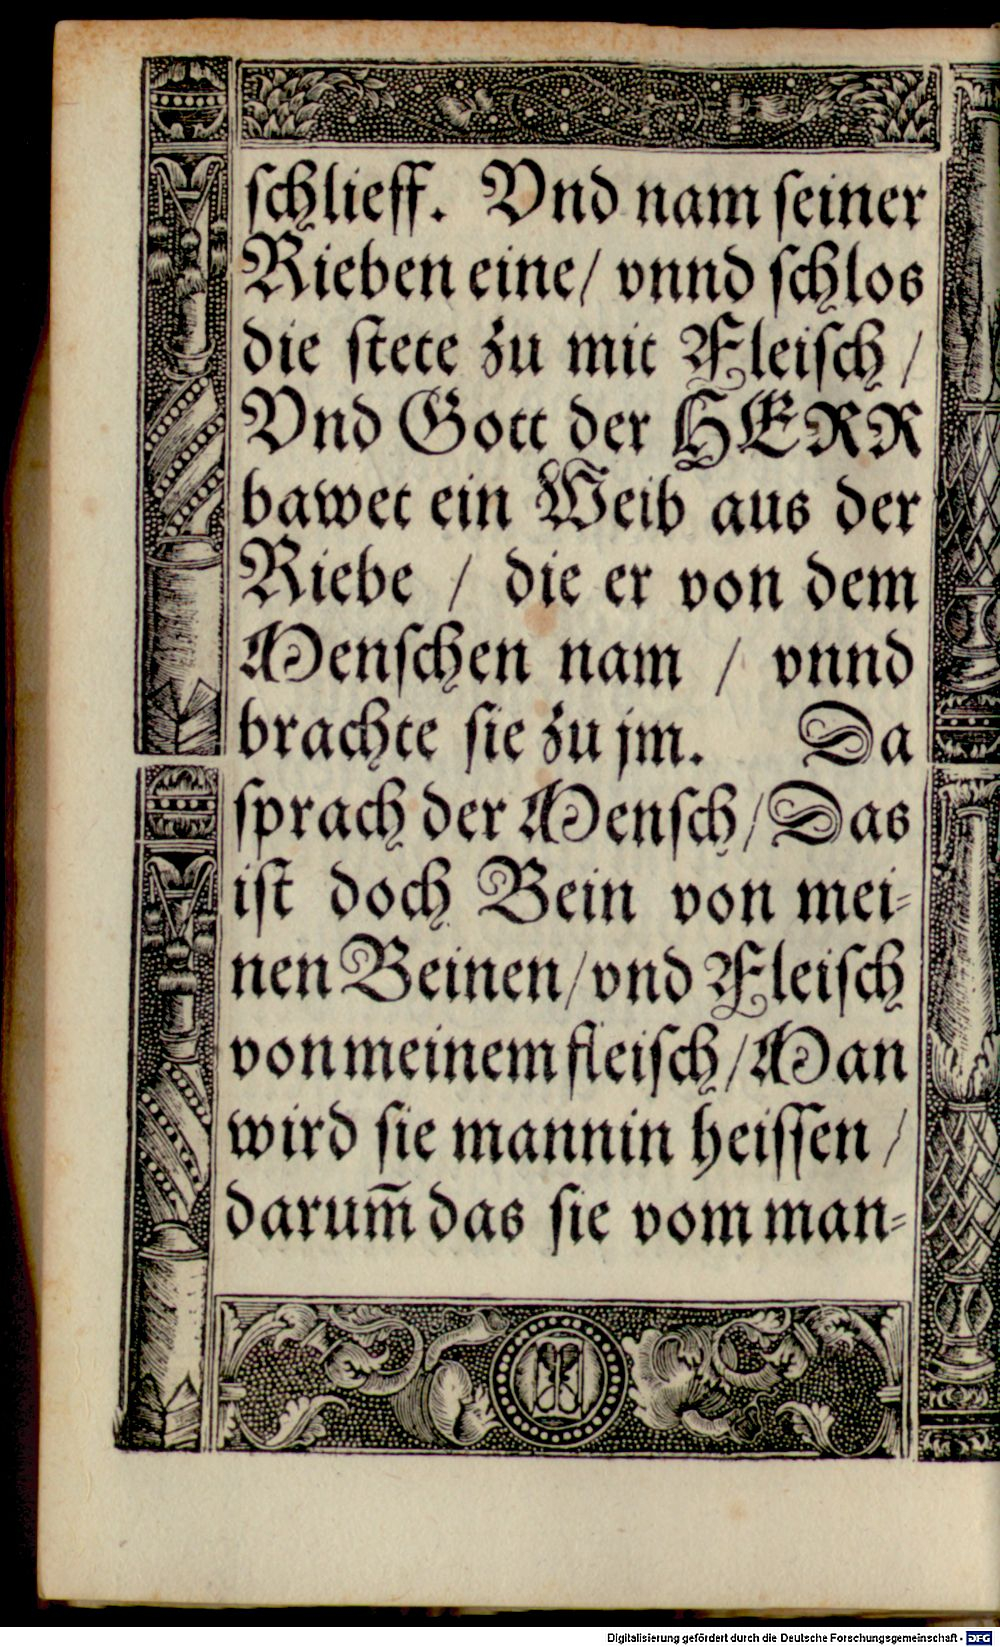 ſchlieff. Vnd nam ſeiner
Rieben eine/ vnnd ſchlos
die ſtete zu mit Fleiſch /
Vnd Gott der HERR
bawet ein Weib aus der
Riebe / die er von dem
Menſchen nam / vnnd
brachte ſie zu jm. Da
ſprach der Menſch/ Das
iſt doch Bein von mei-
nen Beinen/ vnd Fleiſch
von meinem fleiſch/ Man
wird ſie mannin heiſſen /
darum̄ das ſie vom man-
Digitalisierung gefördert durch die Deutsche Forschungsgemeinschaft - DFG